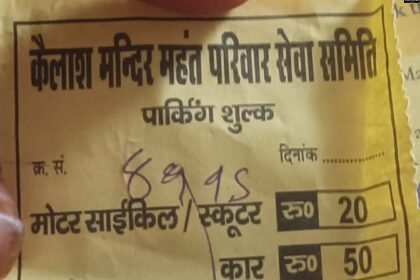 कैलाश मन्दिर महंत परिवार सेवा समिति
पार्किंग शुल्क
क्र. सं. दिनांक ..............
मोटर साईकिल / स्कूटर रु० 20
कार रु० 50